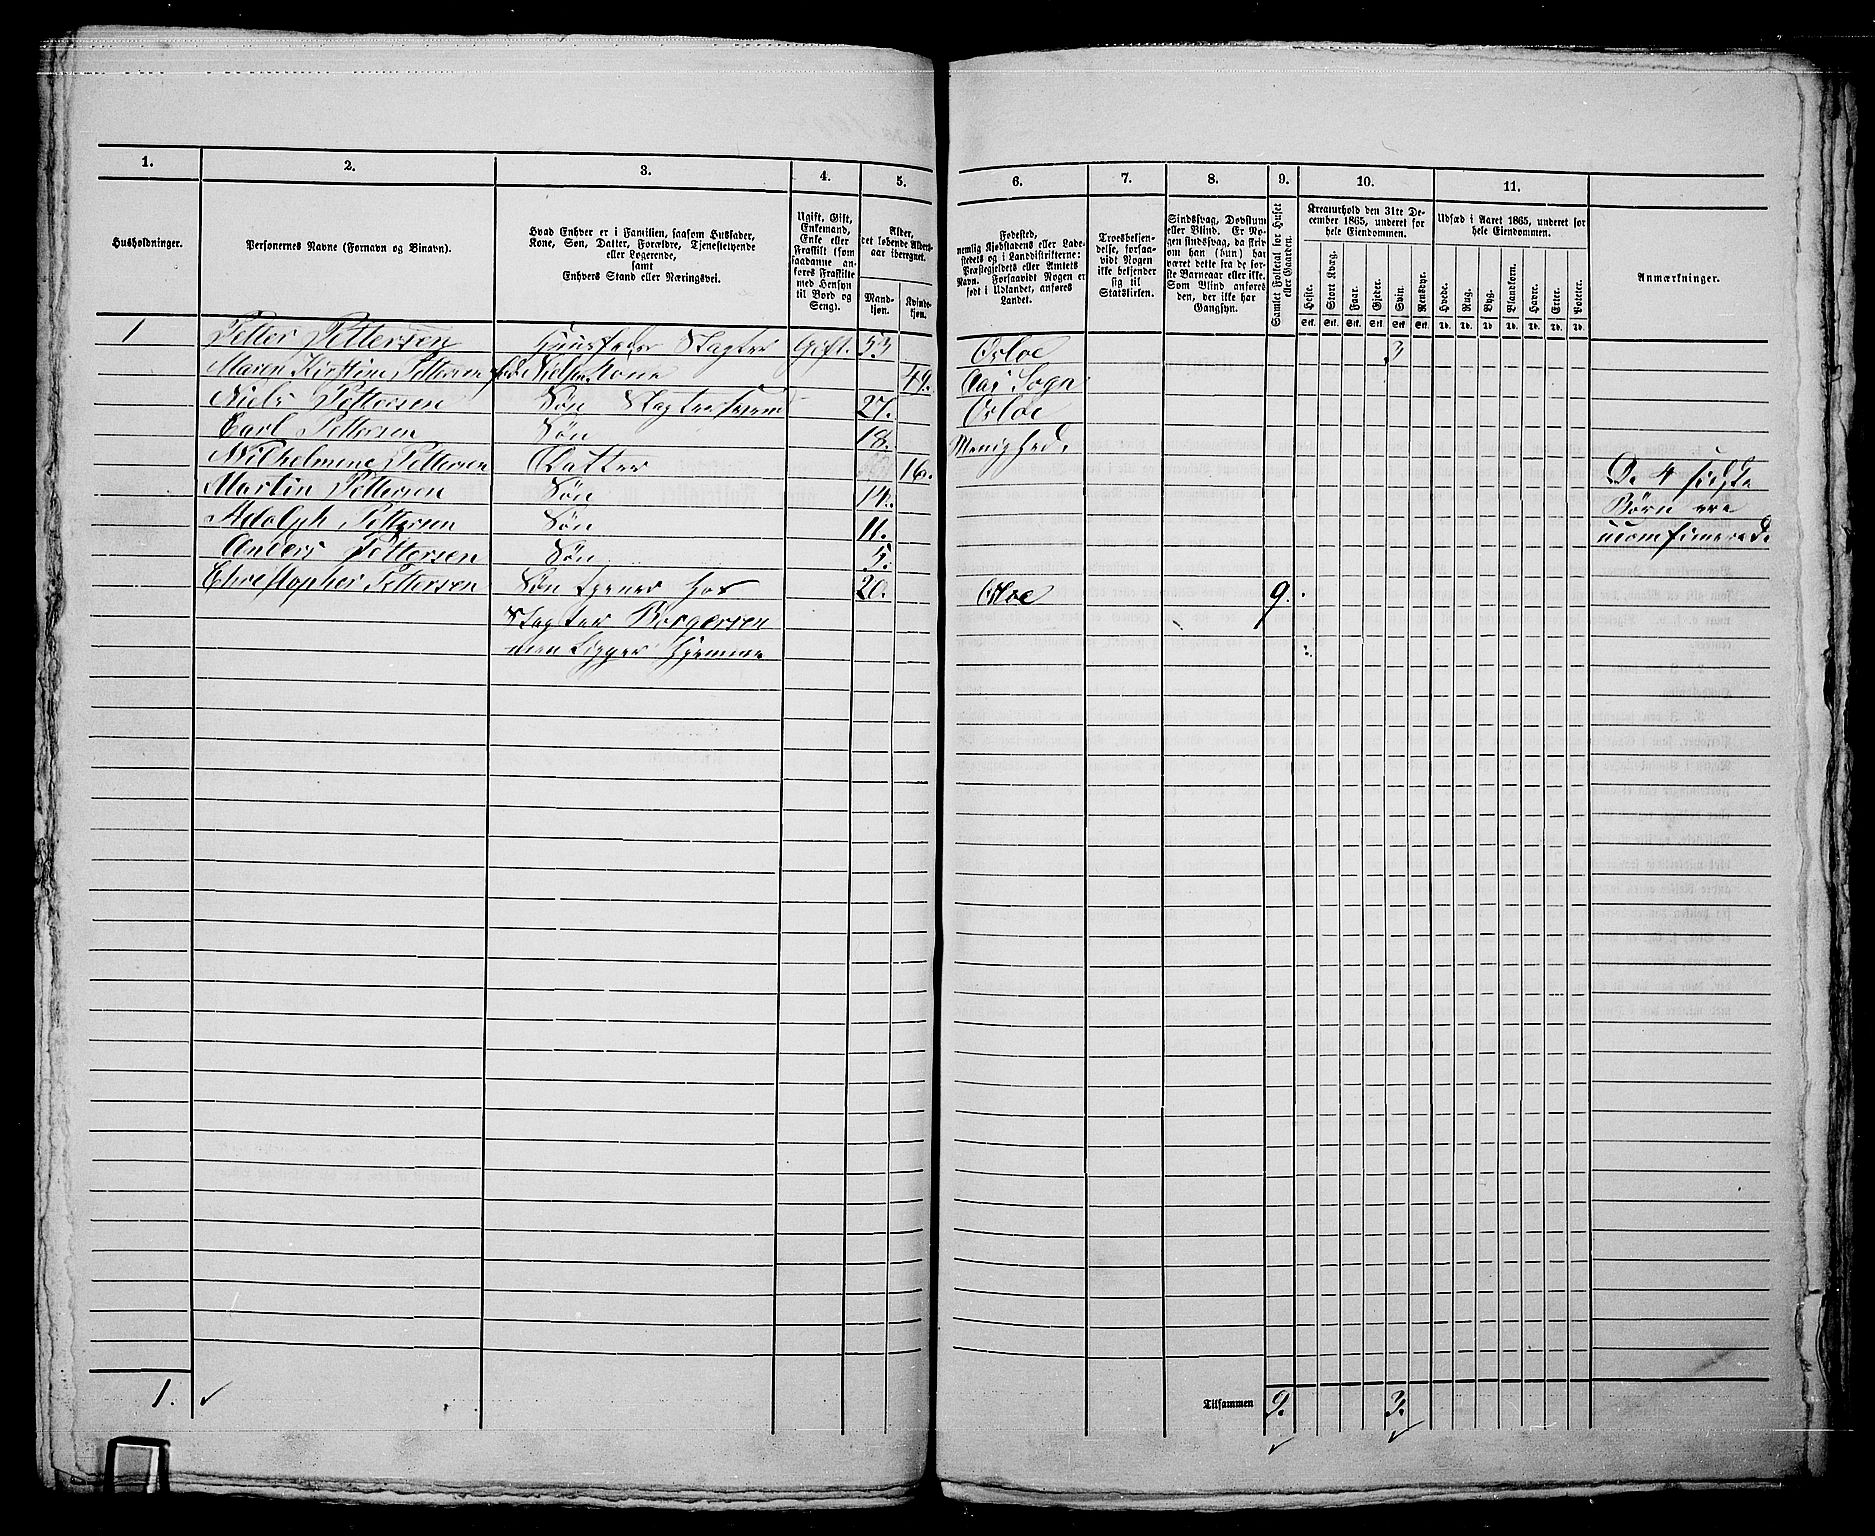 1. 2. 3. 4. 5. 6. 7. 8. 9. 10. 11.
Husholdninger.
Personernes Navne (Fornavn og Binavn).
Hvad Enhver er i Familien, saasom Husfader,
Kone, Søn, Datter, Forældre, Tjenestetyende
eller Logerende,
samt
Enhvers Stand eller Næringsvei.
Ugift, Gift,
Enkemand,
Enke eller
Fraskilt (som
saadanne an-
føres Fraskilte
med Hensyn
til Bord og
Seng).
Alder,
det løbende Alders-
aar iberegnet.
Mand-
kjøn.
Kvinde-
kjøn.
Fødested,
nemlig Kjøbstadens eller Lade-
stedets og i Landdistrikterne:
Præstegjeldets eller Amtets
Navn. Forsaavidt Nogen er
født i Udlandet, anføres
Landet.
Troesbekjen-
delse, forsaa-
vidt Nogen
ikke bekjender
sig til
Statskirken.
Sindssvag, Døvstum
eller Blind. Er No-
gen sindssvag, da skriv
om han (hun) har
været dette fra de før-
ste Barneaar eller ikke.
Som Blind anføres
den, der ikke har
Gangsyn.
Samlet Folketal for Huset
eller Gaarden.
Kreaturhold den 31te De-
cember 1865, underet for
hele Eiendommen.
Heste. Stort Kvæg. Faar. Gjeder. Svin. Rensdyr.
Stk. Stk. Stk. Stk. Stk. Stk.
Udsæd i Aaret 1865, underet for
hele Eiendommen.
Hvede. Rug. Byg. Blandkorn. Havre. Erter. Poteter.
Td. Td. Td. Td. Td. Td. Td.
Anmærkninger.
1 Petter Pettersen Huusfader Slagter Gift. 53 Osloe 3
Maren Kirstine Pettersen Kone 49. Aas Sogn
Niels Pettersen Søn Slagtersvend 27. Osloe
Carl Pettersen Søn 18. Menighed.
Wilhelmine Pettersen Datter 16. De 4 sidste
Martin Pettersen Søn 14. Børn ere
Adolph Pettersen Søn 11.
Anders Pettersen Søn 5.
Christopher Pettersen Søn hos 20. Osloe 9.
Slagter Borgersen
men Ligger Hjemme
1. Tilsammen 9. 3.